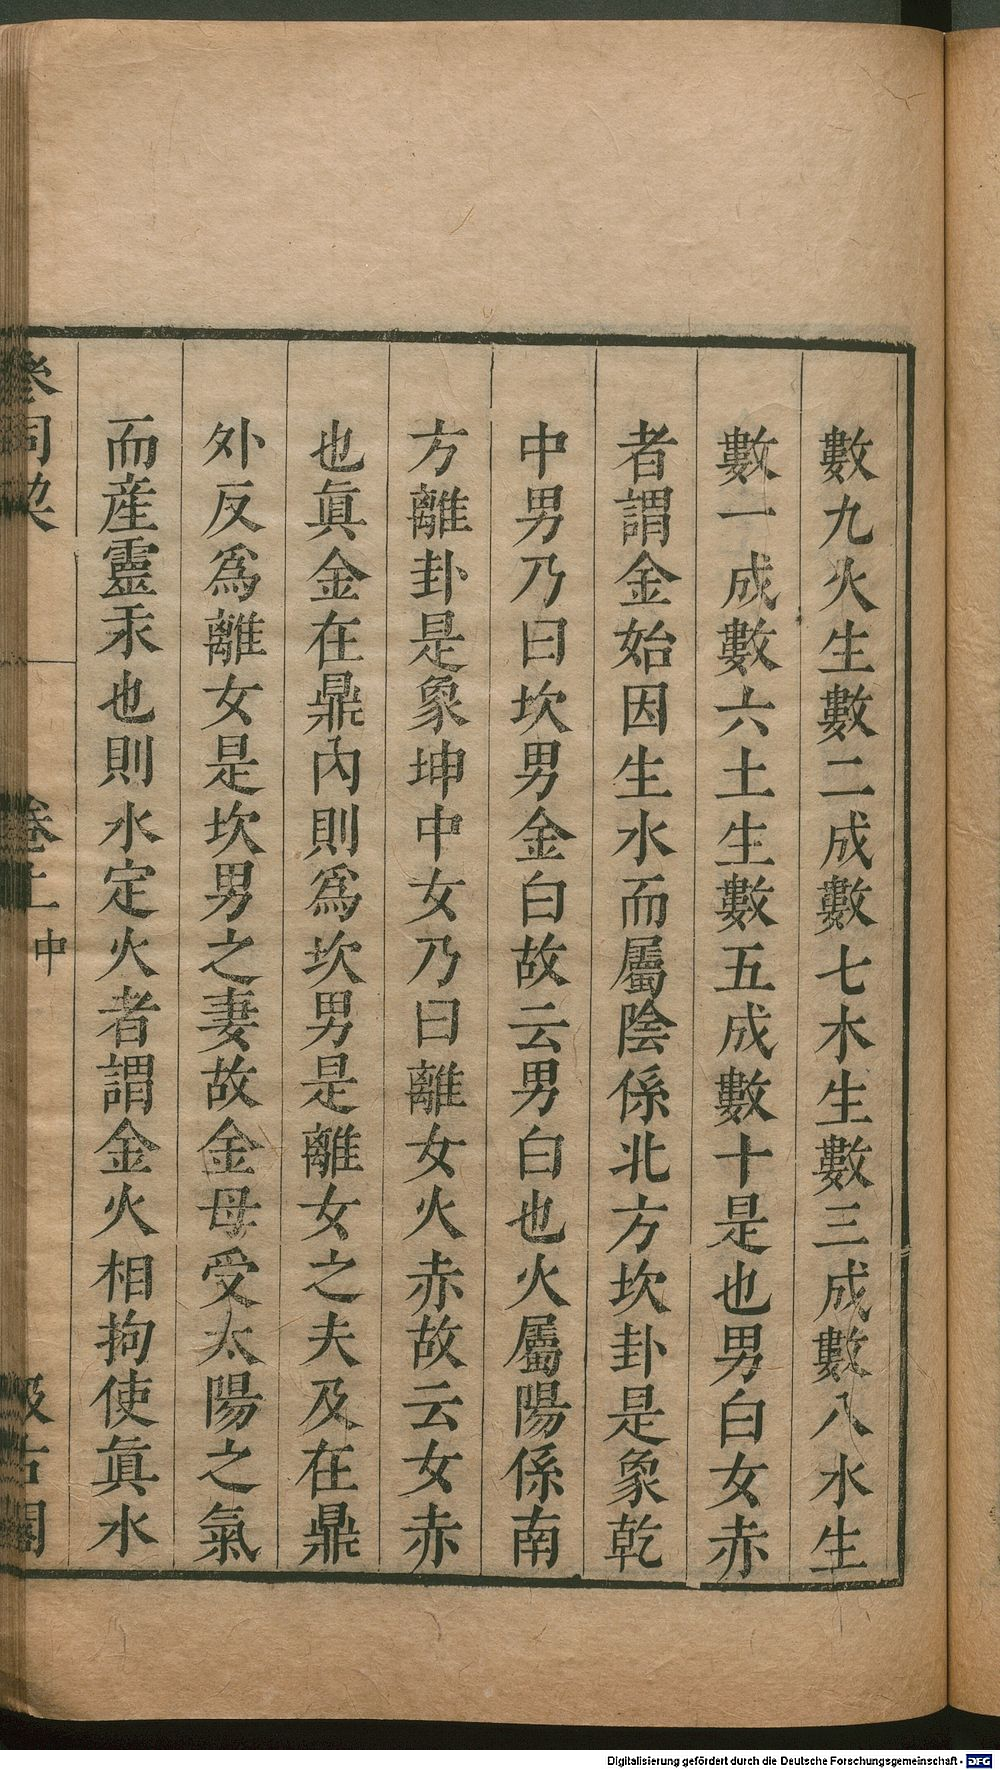 數九火生數二成數七木生數三成數八水生
數一成數六土生數五成數十是也男白女赤
者謂金始因生水而屬陰係北方坎卦是象乾
中男乃曰坎男金白故云男白也火屬陽係南
方離卦是象坤中女乃曰離女火赤故云女赤
也眞金在鼎內則爲坎男是離女之夫及在鼎
外反爲離女是坎男之妻故金母受太陽之氣
而産靈汞也則水定火者謂金火相拘使眞水
參同 卷上 中 汲古閣
Digitalisierung gefördert durch die Deutsche Forschungsgemeinschaft - DFG